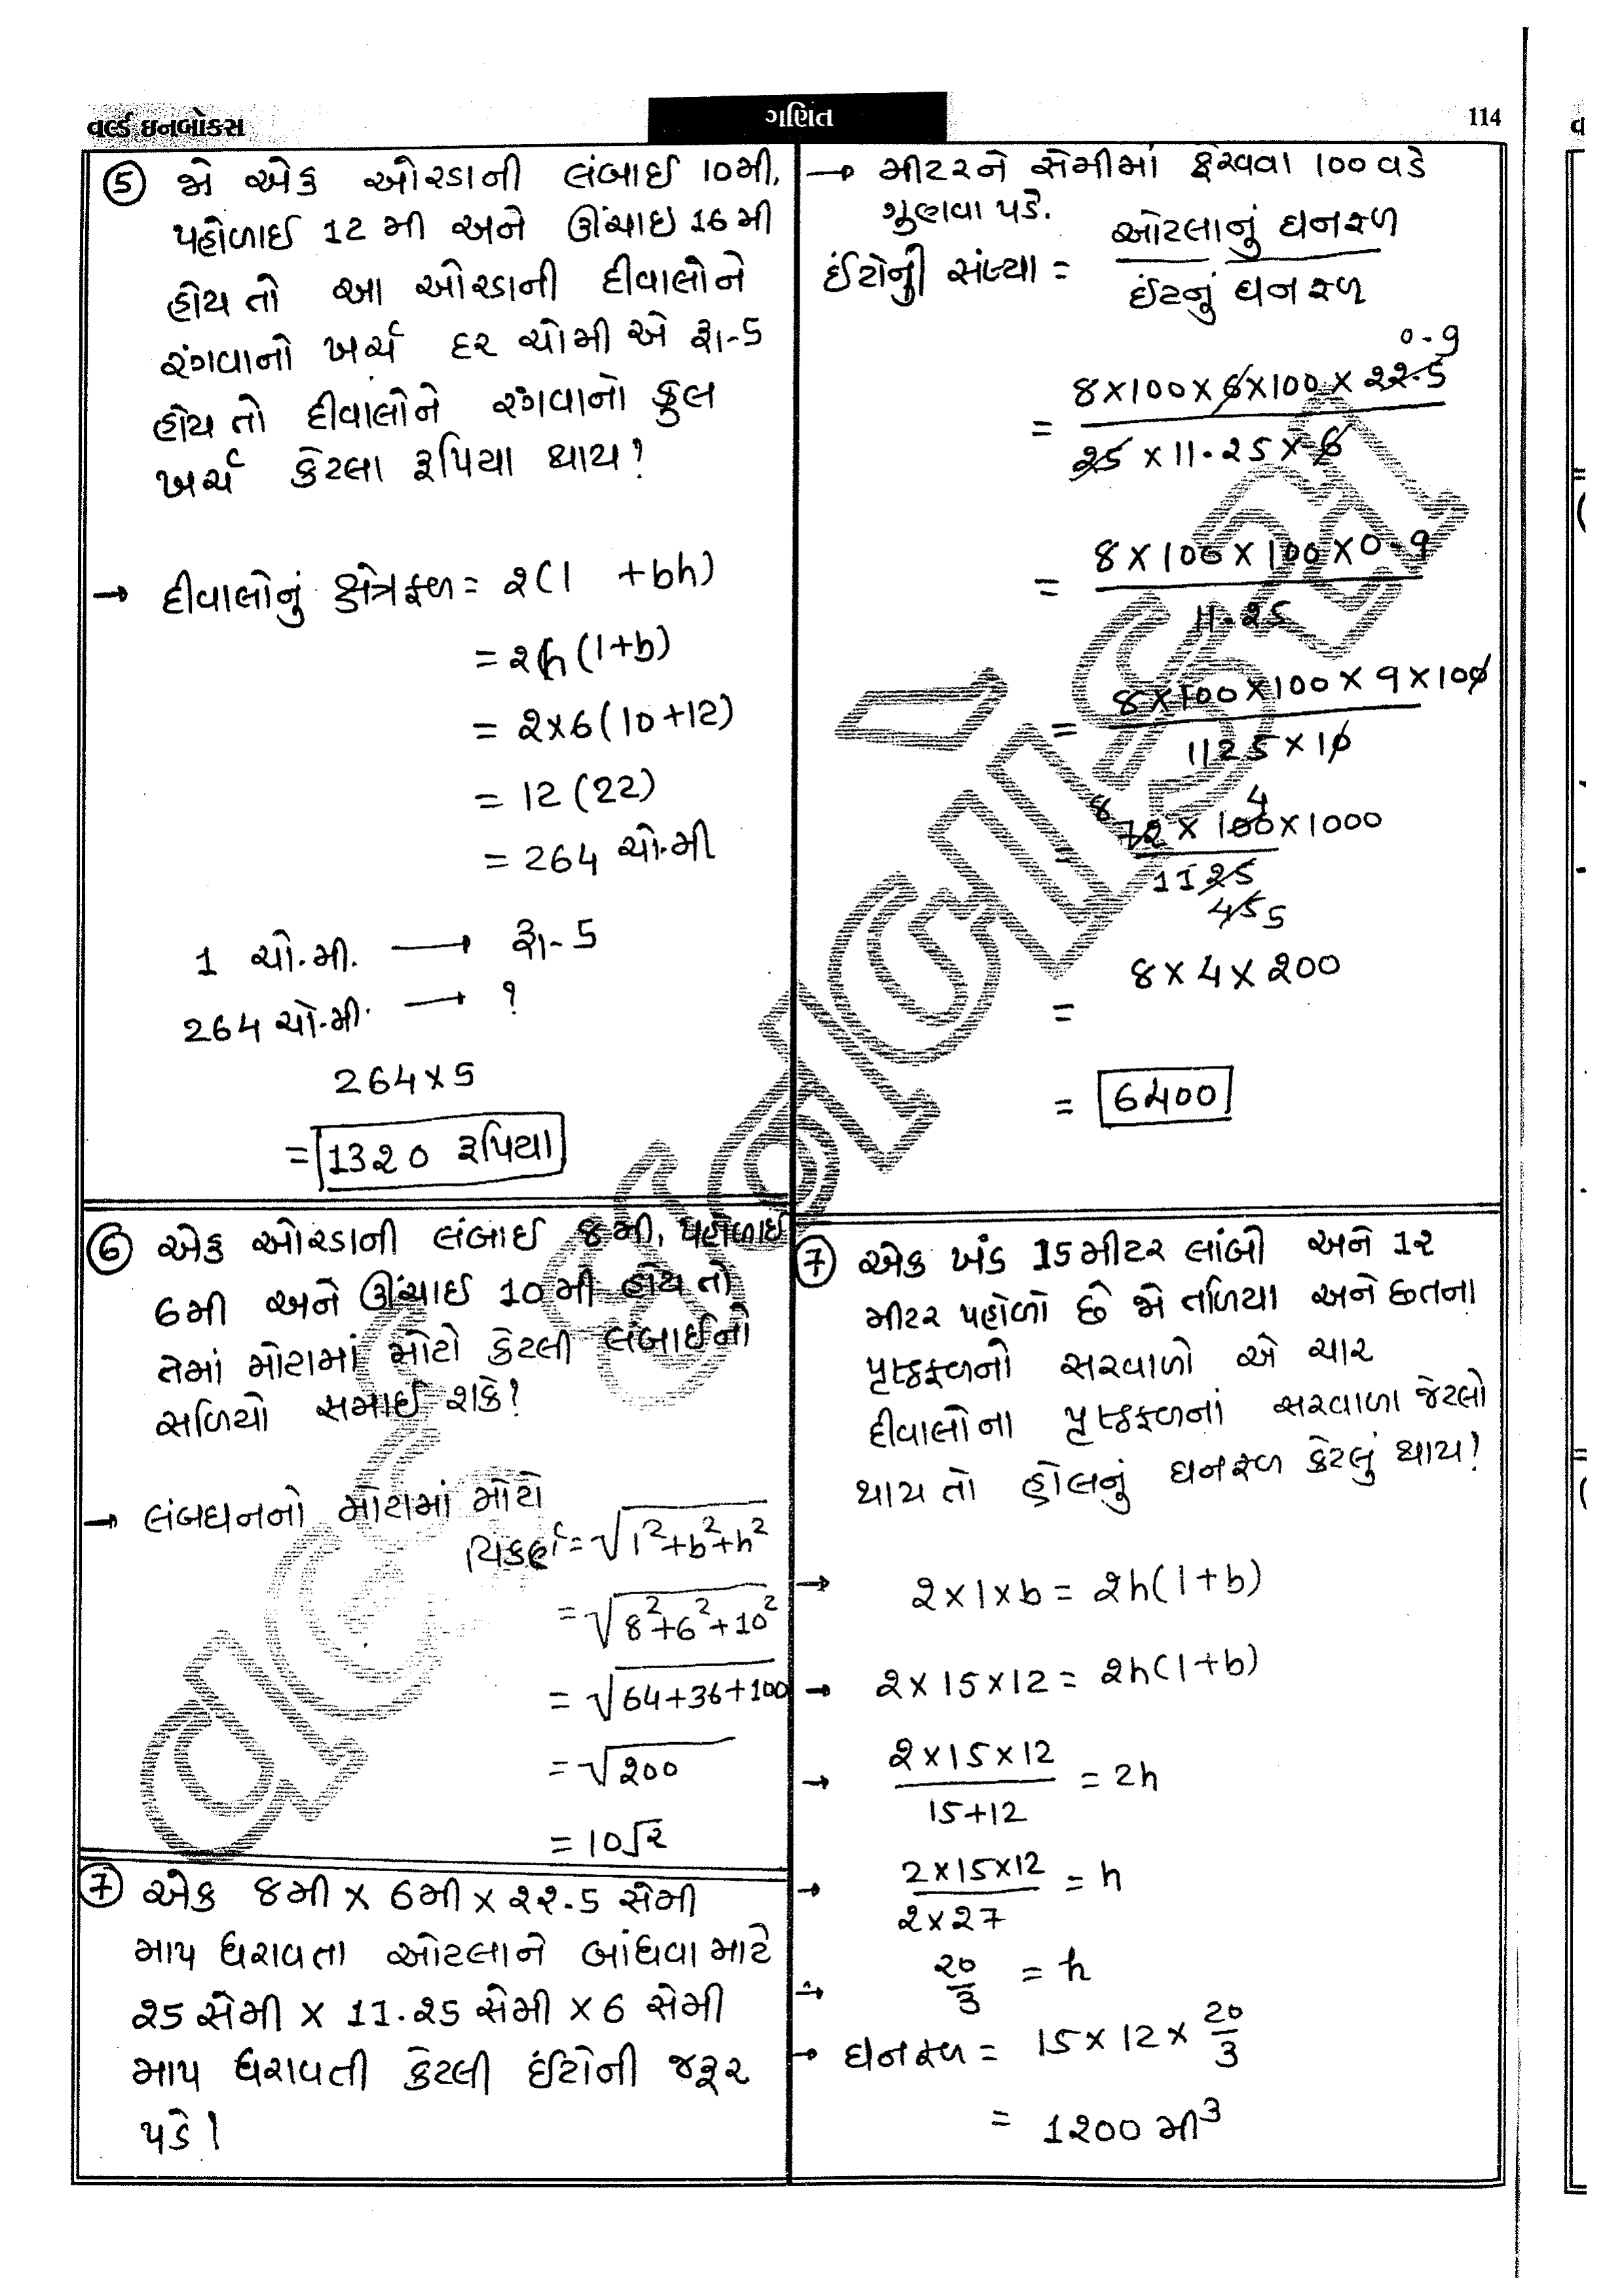 વર્લ્ડ ઇનબોક્સ
ગણિત
114
5 જો એક ઓરડાની લંબાઈ 10મી,
પહોળાઈ 12 મી અને ઊંચાઇ 16 મી
હોય તો આ ઓરડાની દીવાલોને
રંગવાનો ખર્ચ દર ચોમી એ રૂા-5
હોય તો દીવાલોને રંગવાનો કુલ
ખર્ચ કેટલા રૂપિયા થાય?
→ દીવાલોનું ક્ષેત્રફળ = ૨(l +bh)
= ૨h(l+b)
= ૨×6(10+12)
= 12(22)
= 264 ચો.મી
1 ચો.મી. → રૂા-5
264 ચો.મી. → ?
264×5
= 13૨0 રૂપિયા
6 એક ઓરડાની લંબાઈ 8મી, પહોળાઈ
6મી અને ઊંચાઈ 10મી હોય તો
તેમાં મોટામાં મોટો કેટલી લંબાઈનો
સળિયો સમાઈ શકે?
→ લંબઘનનો મોટામાં મોટો
વિકર્ણ = √l²+b²+h²
= √8²+6²+10²
= √64+36+100
= √૨00
= 10√૨
7 એક 8મી × 6મી × ૨૨.5 સેમી
માપ ધરાવતા ઓટલાને બાંધવા માટે
૨5 સેમી × 11.૨5 સેમી × 6 સેમી
માપ ધરાવતી કેટલી ઈંટોની જરૂર
પડે!
→ મીટરને સેમીમાં ફેરવવા 100 વડે
ગુણવા પડે.
ઈંટોની સંખ્યા = ઓટલાનું ઘનફળ
ઈંટનું ઘનફળ
0.9
= 8×100×6×100×૨૨.5
૨5×11.૨5×6
= 8×100×100×0.9
11.૨5
= 8×100×100×9×100
11૨5×10
8 4
= 7૨×100×1000
11૨5
45 5
= 8×4×૨00
= 6400
7 એક ખંડ 15 મીટર લાંબો અને 1૨
મીટર પહોળો છે જો તળિયા અને છતના
પૃષ્ઠફળનો સરવાળો એ ચાર
દીવાલોના પૃષ્ઠફળનાં સરવાળા જેટલો
થાય તો હોલનું ઘનફળ કેટલું થાય?
→ ૨×l×b = ૨h(l+b)
→ ૨×15×12 = ૨h(l+b)
→ ૨×15×12 = 2h
15+12
→ 2×15×12 = h
૨×૨7
→ ૨0 = h
3
→ ઘનફળ = 15×12× ૨0
3
= 1૨00 મી³